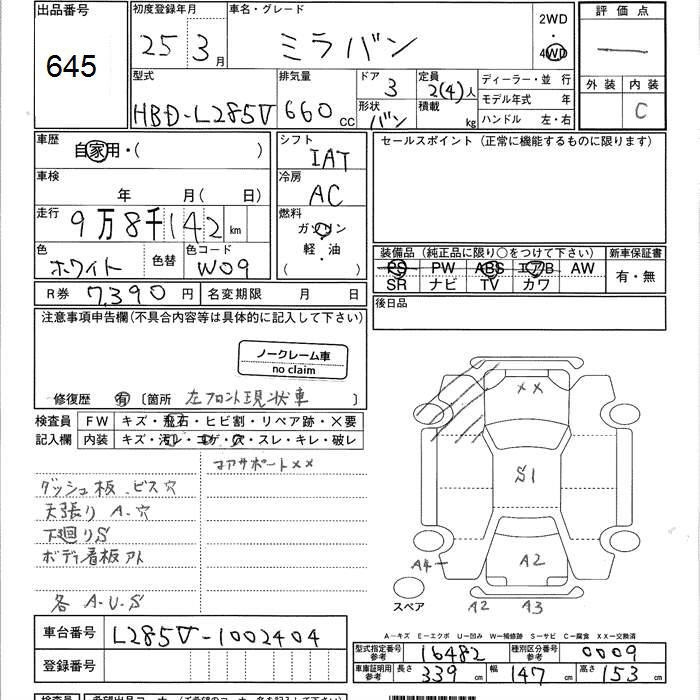 出品番号
645
初度登録年月
25 3月
車名・グレード
ミラバン
2WD
4WD
評価点
外装 内装
C
型式
HBD-L285V
排気量
660 CC
ドア
3
形状
バン
定員
2(4)人
積載
kg
ディーラー・並 行
モデル年式 年
ハンドル 左・右
車歴
自家用・( )
車検
年 月( 日)
走行
9万8千142km
色
ホワイト
色替
色コード
W09
シフト
IAT
冷房
AC
燃料
ガソリン
軽・油
( )
セールスポイント(正常に機能するものに限ります)
装備品(純正品に限り○をつけて下さい)
PS PW ABS エアB AW
SR ナビ TV カワ
新車保証書
有・無
R券 7,390円
名変期限 月 日
後日品
注意事項申告欄(不具合内容等は具体的に記入して下さい)
ノークレーム車
no claim
修復歴 有 〔箇所 左フロント現状車 〕
検査員
記入欄
FW キズ・飛石・ヒビ割・リペア跡・×要
内装 キズ・汚レ・コゲ・穴・スレ・キレ・破レ
コアサポート××
ダッシュ板 ビス穴
天張り A・穴
下廻りS
ボディ看板アト
各 A・U・S
××
S1
A2
A4
A2 A3
スペア
A-キズ E-エクボ U-凹み W-補修跡 S-サビ C-腐食 XX-交換済
車台番号
L285V-1002404
登録番号
型式指定番号
参考
16482
種別区分番号
参考
0009
車庫証明用
参考
長さ 339cm 幅 147cm 高さ 153cm